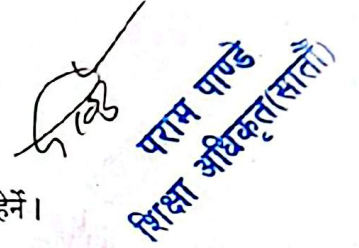 पराम पाण्डे
शिक्षा अधिकृत(सातौं)
हेर्ने।